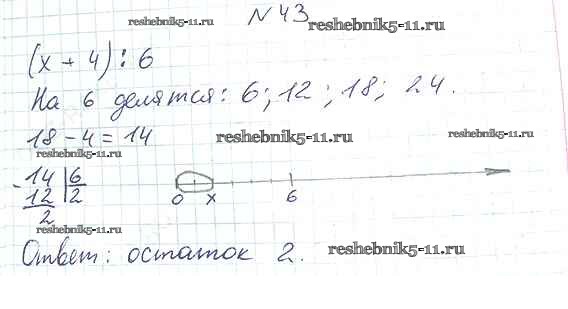 reshebnik5-11.ru № 43 reshebnik5-11.ru
(x + 4) : 6
На 6 делятся: 6; 12; 18; 24.
18 - 4 = 14 reshebnik5-11.ru reshebnik5-11.ru
reshebnik5-11.ru
- 14 | 6
12 2
2
0 x 6
reshebnik5-11.ru
Ответ: остаток 2. reshebnik5-11.ru